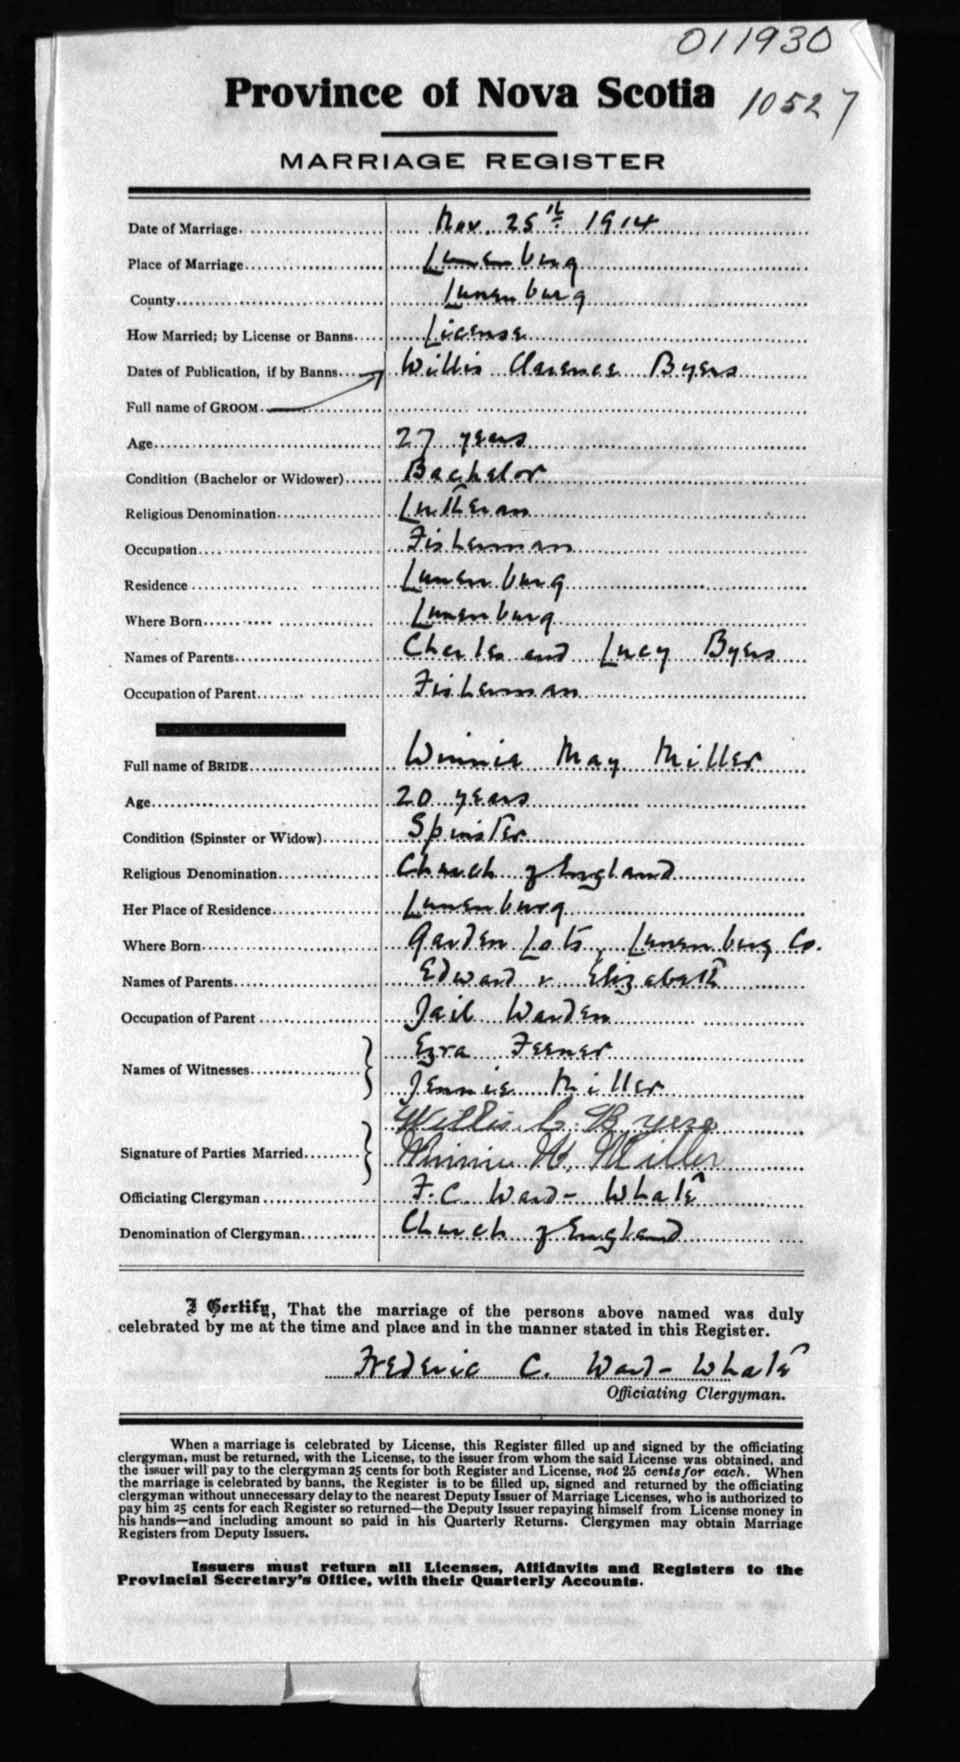 011930
Province of Nova Scotia 10527
MARRIAGE REGISTER
Date of Marriage. Nov. 25th 1914
Place of Marriage Lunenburg
County Lunenburg
How Married; by License or Banns License
Dates of Publication, if by Banns Willis Clarence Byers
Full name of GROOM
Age 27 years
Condition (Bachelor or Widower) Bachelor
Religious Denomination Lutheran
Occupation Fisherman
Residence Lunenburg
Where Born Lunenburg
Names of Parents Charles and Lucy Byers
Occupation of Parent Fisherman
Full name of BRIDE Winnie May Miller
Age 20 years
Condition (Spinster or Widow) Spinster
Religious Denomination Church of England
Her Place of Residence Lunenburg
Where Born Garden Lots, Lunenburg Co.
Names of Parents Edward & Elizabeth
Occupation of Parent Jail Warden
Names of Witnesses Ezra Feener
Jennie Miller
Signature of Parties Married Willis C Byers
Winnie M. Miller
Officiating Clergyman F.C. Ward-Whate
Denomination of Clergyman Church of England
I Certify, That the marriage of the persons above named was duly
celebrated by me at the time and place and in the manner stated in this Register.
Frederic C. Ward-Whate
Officiating Clergyman.
When a marriage is celebrated by License, this Register filled up and signed by the officiating
clergyman, must be returned, with the License, to the issuer from whom the said License was obtained, and
the issuer will pay to the clergyman 25 cents for both Register and License, not 25 cents for each. When
the marriage is celebrated by banns, the Register is to be filled up, signed and returned by the officiating
clergyman without unnecessary delay to the nearest Deputy Issuer of Marriage Licenses, who is authorized to
pay him 25 cents for each Register so returned—the Deputy Issuer repaying himself from License money in
his hands—and including amount so paid in his Quarterly Returns. Clergymen may obtain Marriage
Registers from Deputy Issuers.
Issuers must return all Licenses, Affidavits and Registers to the
Provincial Secretary's Office, with their Quarterly Accounts.